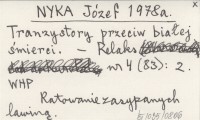 NYKA Józef 1978a.
Tranzystory przeciw białej
śmierci. – Relaks
nr 4 (83): 2.
WHP
Ratowanie zasypanych
lawiną.